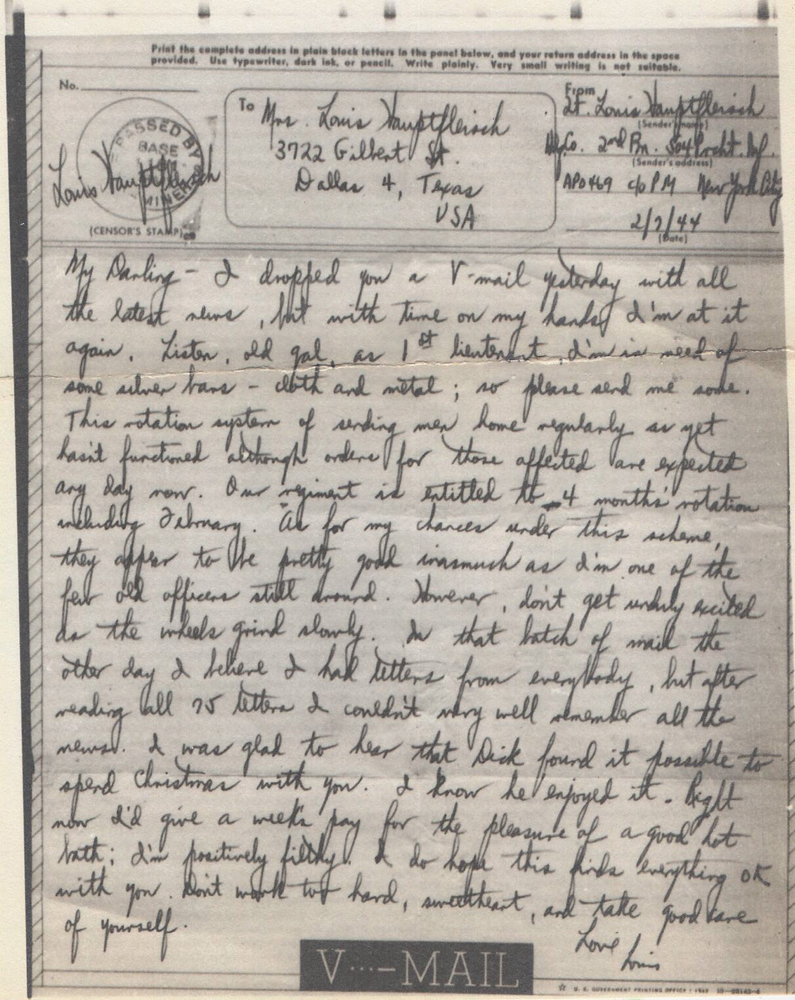 Print the complete address in plain block letters in the panel below, and your return address in the space
provided. Use typewriter, dark ink, or pencil. Write plainly. Very small writing is not suitable.
No.
PASSED BY
BASE
Louis Hauptfleisch
(CENSOR'S STAMP)
To Mrs. Louis Hauptfleisch
3722 Gilbert St.
Dallas 4, Texas
USA
From
Lt. Louis Hauptfleisch
(Sender's name)
Hq. Co. 2nd Bn. 504 Prcht. Inf.
(Sender's address)
APO 469 c/o PM New York City
2/7/44
(Date)
My Darling - I dropped you a V-mail yesterday with all
the latest news, but with time on my hands, I'm at it
again. Listen, old gal, as 1st lieutenant, I'm in need of
some silver bars - cloth and metal; so please send me some.
This rotation system of sending men home regularly as yet
hasn't functioned although orders for those affected are expected
any day now. Our regiment is entitled to 4 months' rotation
including February. As for my chances under this scheme,
they appear to be pretty good inasmuch as I'm one of the
few old officers still around. However, don't get unduly excited
as the wheels grind slowly. In that batch of mail the
other day I believe I had letters from everybody, but after
reading all 75 letters I couldn't very well remember all the
news. I was glad to hear that Dick found it possible to
spend Christmas with you. I know he enjoyed it. Right
now I'd give a week's pay for the pleasure of a good hot
bath; I'm positively filthy. I do hope this finds everything OK
with you. Don't work too hard, sweetheart, and take good care
of yourself.
Love
Louis
V···—MAIL
U. S. GOVERNMENT PRINTING OFFICE : 1943